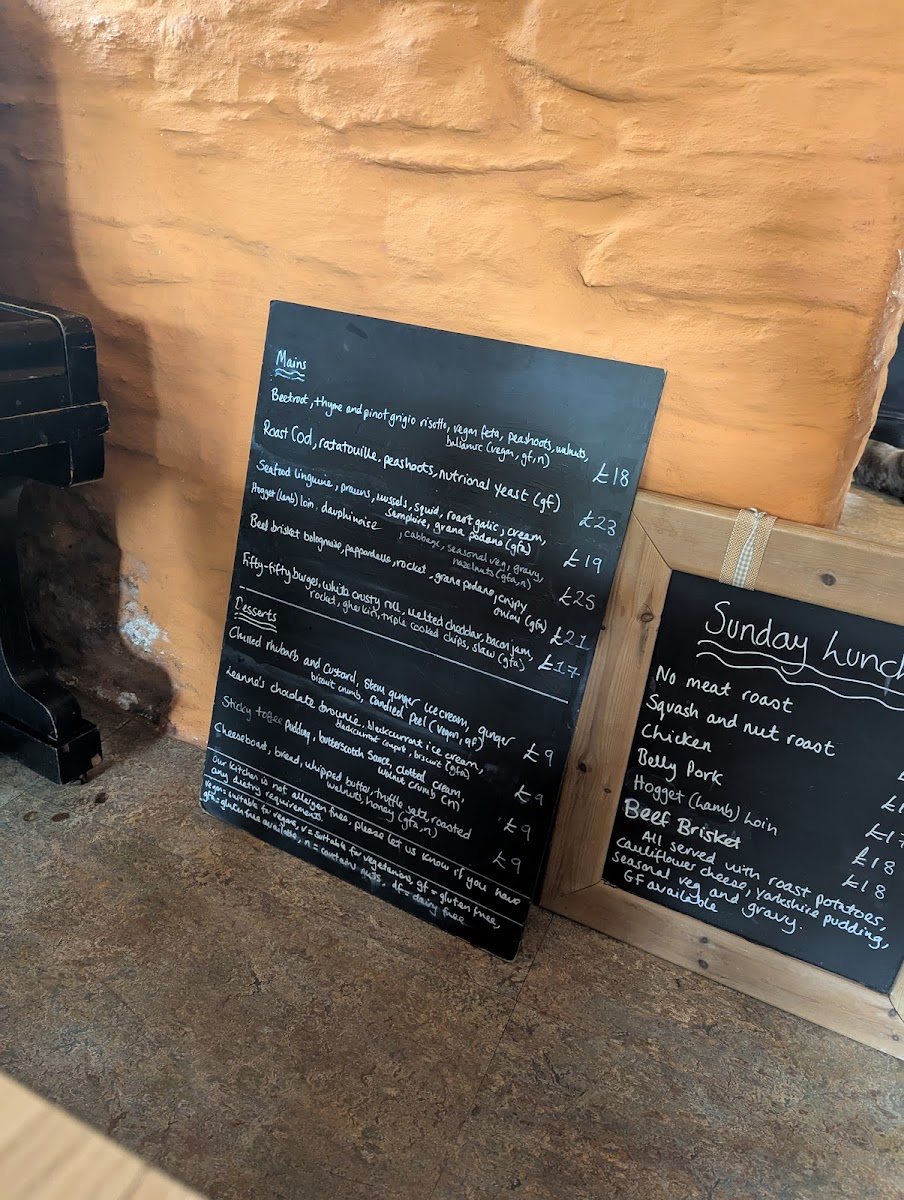 Mains
Beetroot, thyme and pinot grigio risotto, vegan feta, peashoots, walnuts,
balsamic (vegan, gf, n) £18
Roast Cod, ratatouille, peashoots, nutrional yeast (gf) £23
Seafood linguine, prawns, mussels, squid, roast garlic, cream,
samphire, grana padano (gfa) £19
Hogget (lamb) loin, dauphinoise, cabbage, seasonal veg, gravy,
hazelnuts (gfa, n) £25
Beef brisket bolognaise, pappardelle, rocket, grana padano, crispy
onion (gfa) £21
Fifty-fifty burger, white crusty roll, melted cheddar, bacon jam,
rocket, gherkin, triple cooked chips, slaw (gfa) £17
Desserts
Chilled rhubarb and custard, stem ginger ice cream, ginger
biscuit crumb, candied peel (vegan, gf) £9
Leanne's chocolate brownie, blackcurrant ice cream,
blackcurrant compot, biscuit (gfa) £9
Sticky toffee pudding, butterscotch sauce, clotted cream,
walnut crumb (n) £9
Cheeseboard, bread, whipped butter, truffle salt, roasted
walnuts, honey (gfa, n) £9
Our kitchen is not allergen free, please let us know if you have
any dietry requirements.
vegan = suitable for vegans, v = suitable for vegetarians, gf = gluten free,
gfa = gluten free available, n = contains nuts, df = dairy free
Sunday Lunch
No meat roast
Squash and nut roast
Chicken
Belly Pork £17
Hogget (lamb) Loin £18
Beef Brisket £18
All served with roast potatoes,
cauliflower cheese, yorkshire pudding,
seasonal veg and gravy.
GF available